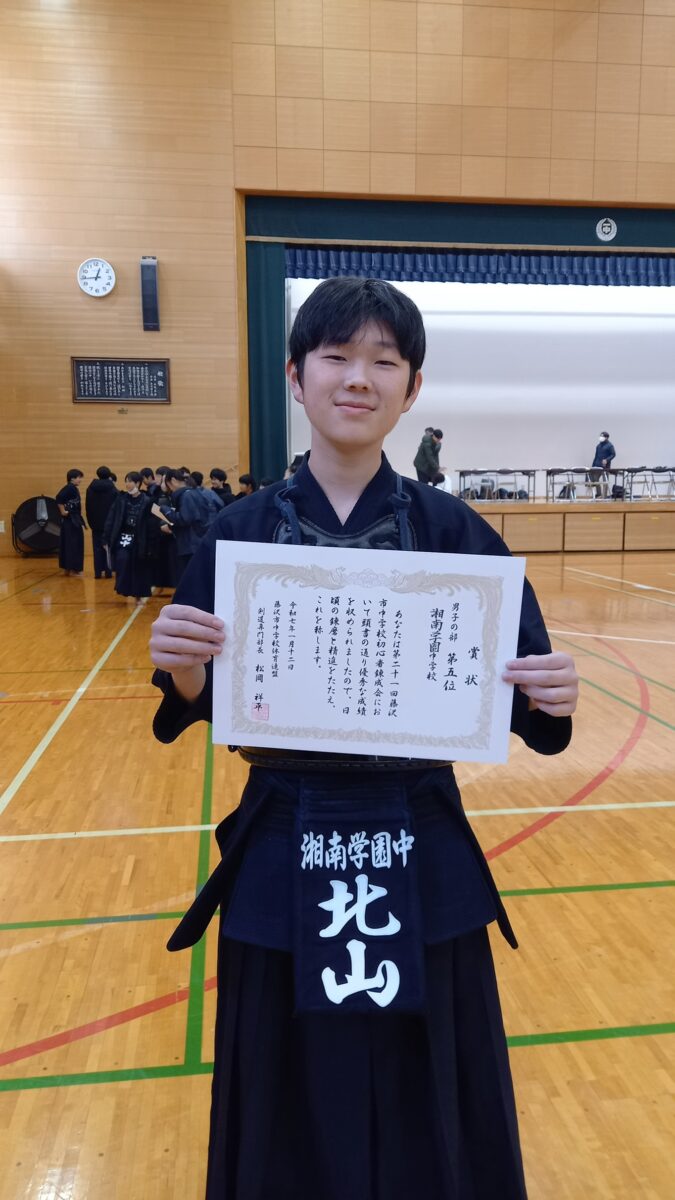 賞状
男子の部 第五位
湘南学園中学校
あなたは第二十一回藤沢
市中学校初心者錬成会にお
いて頭書の通り優秀な成績
を収められましたので、日
頃の錬磨と精進をたたえ、
これを称します。
令和七年一月十二日
藤沢市中学校体育連盟
剣道専門部長 松岡 祥平
湘南学園中
北山
校歌